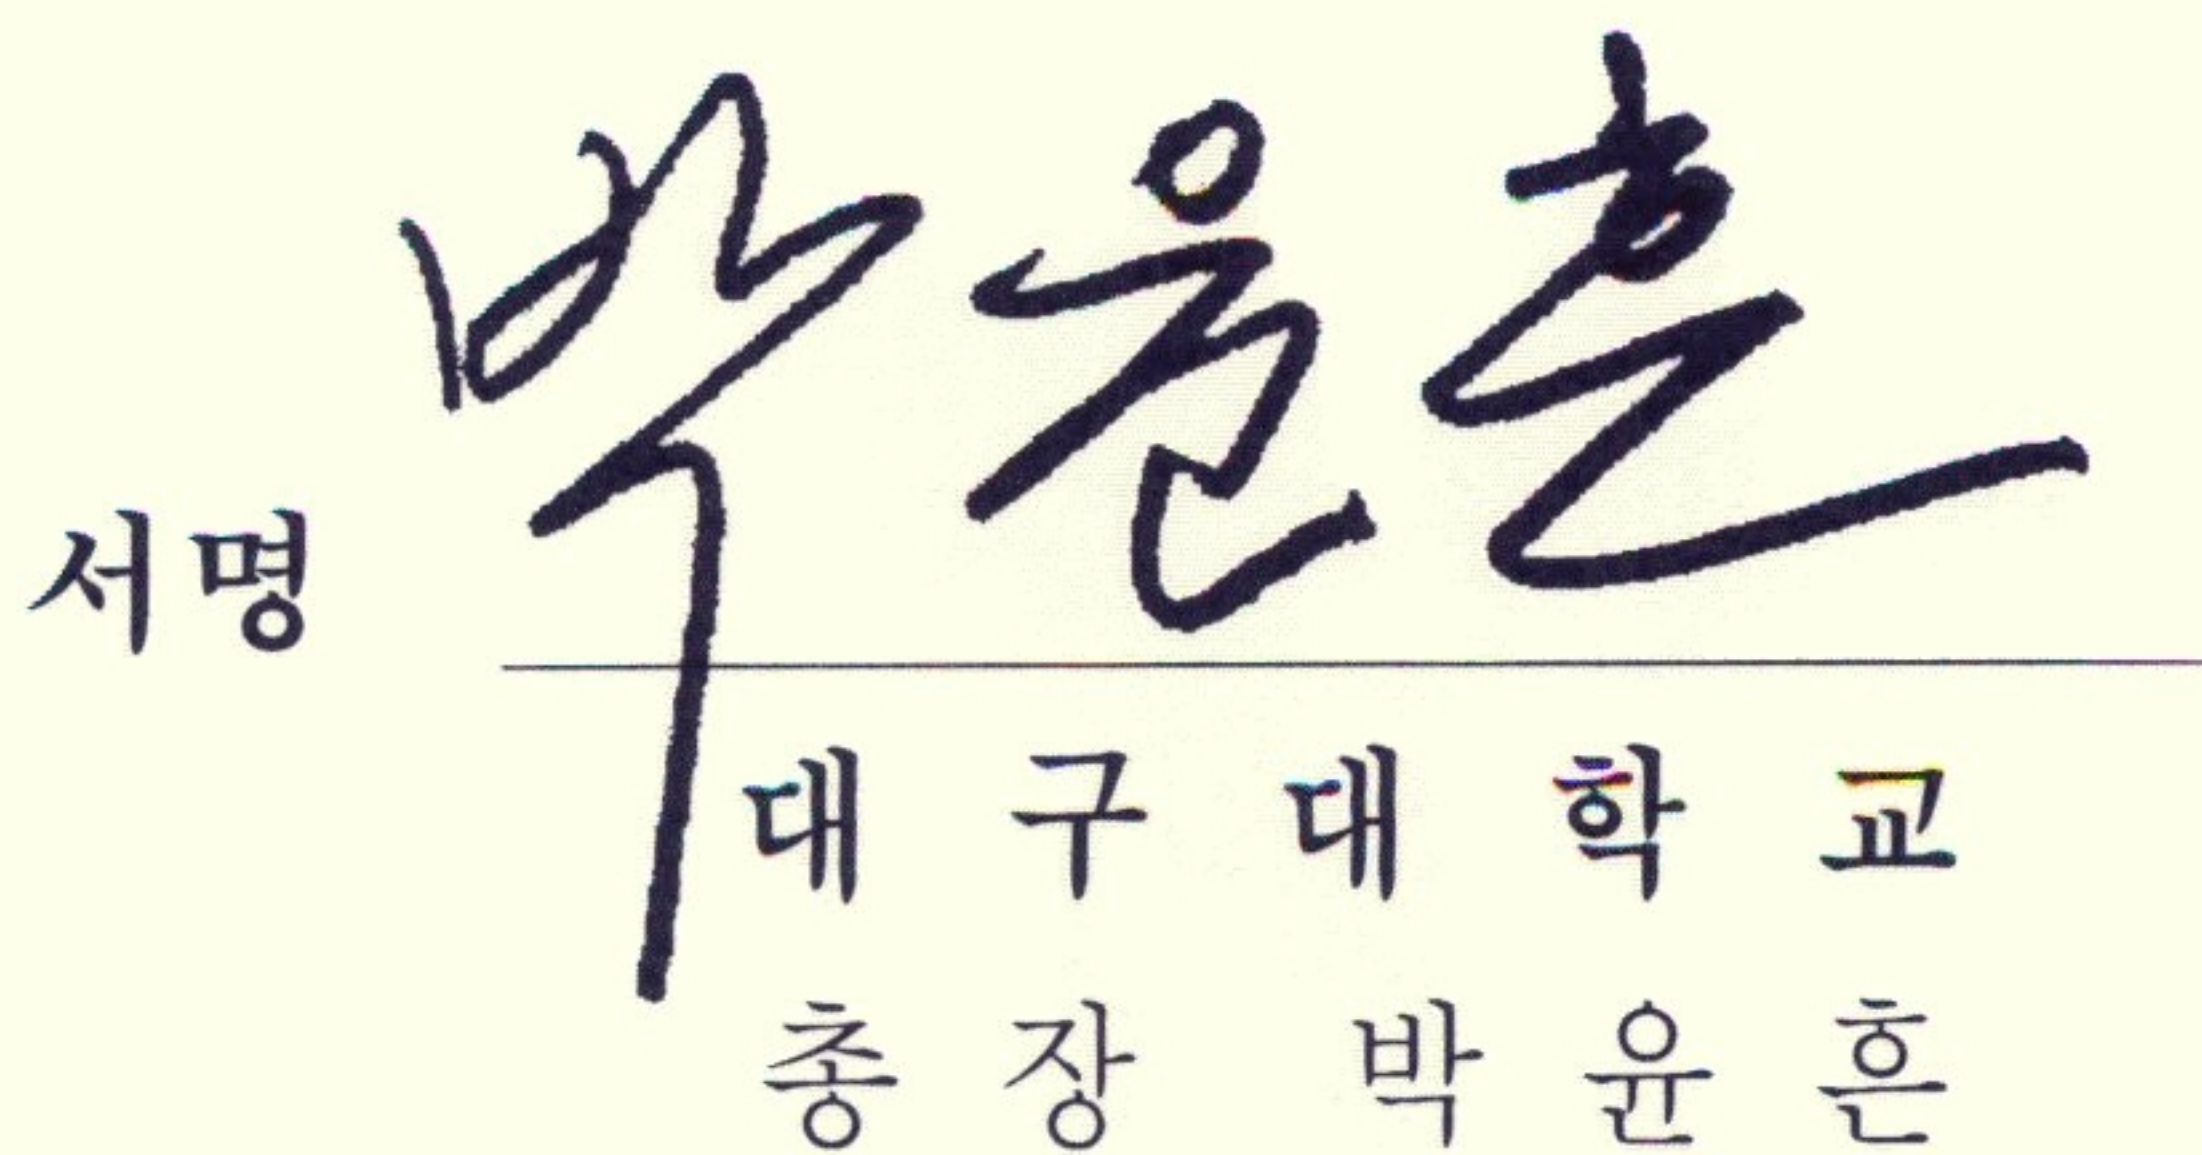 서명 박윤흔
대구대학교
총장 박윤흔